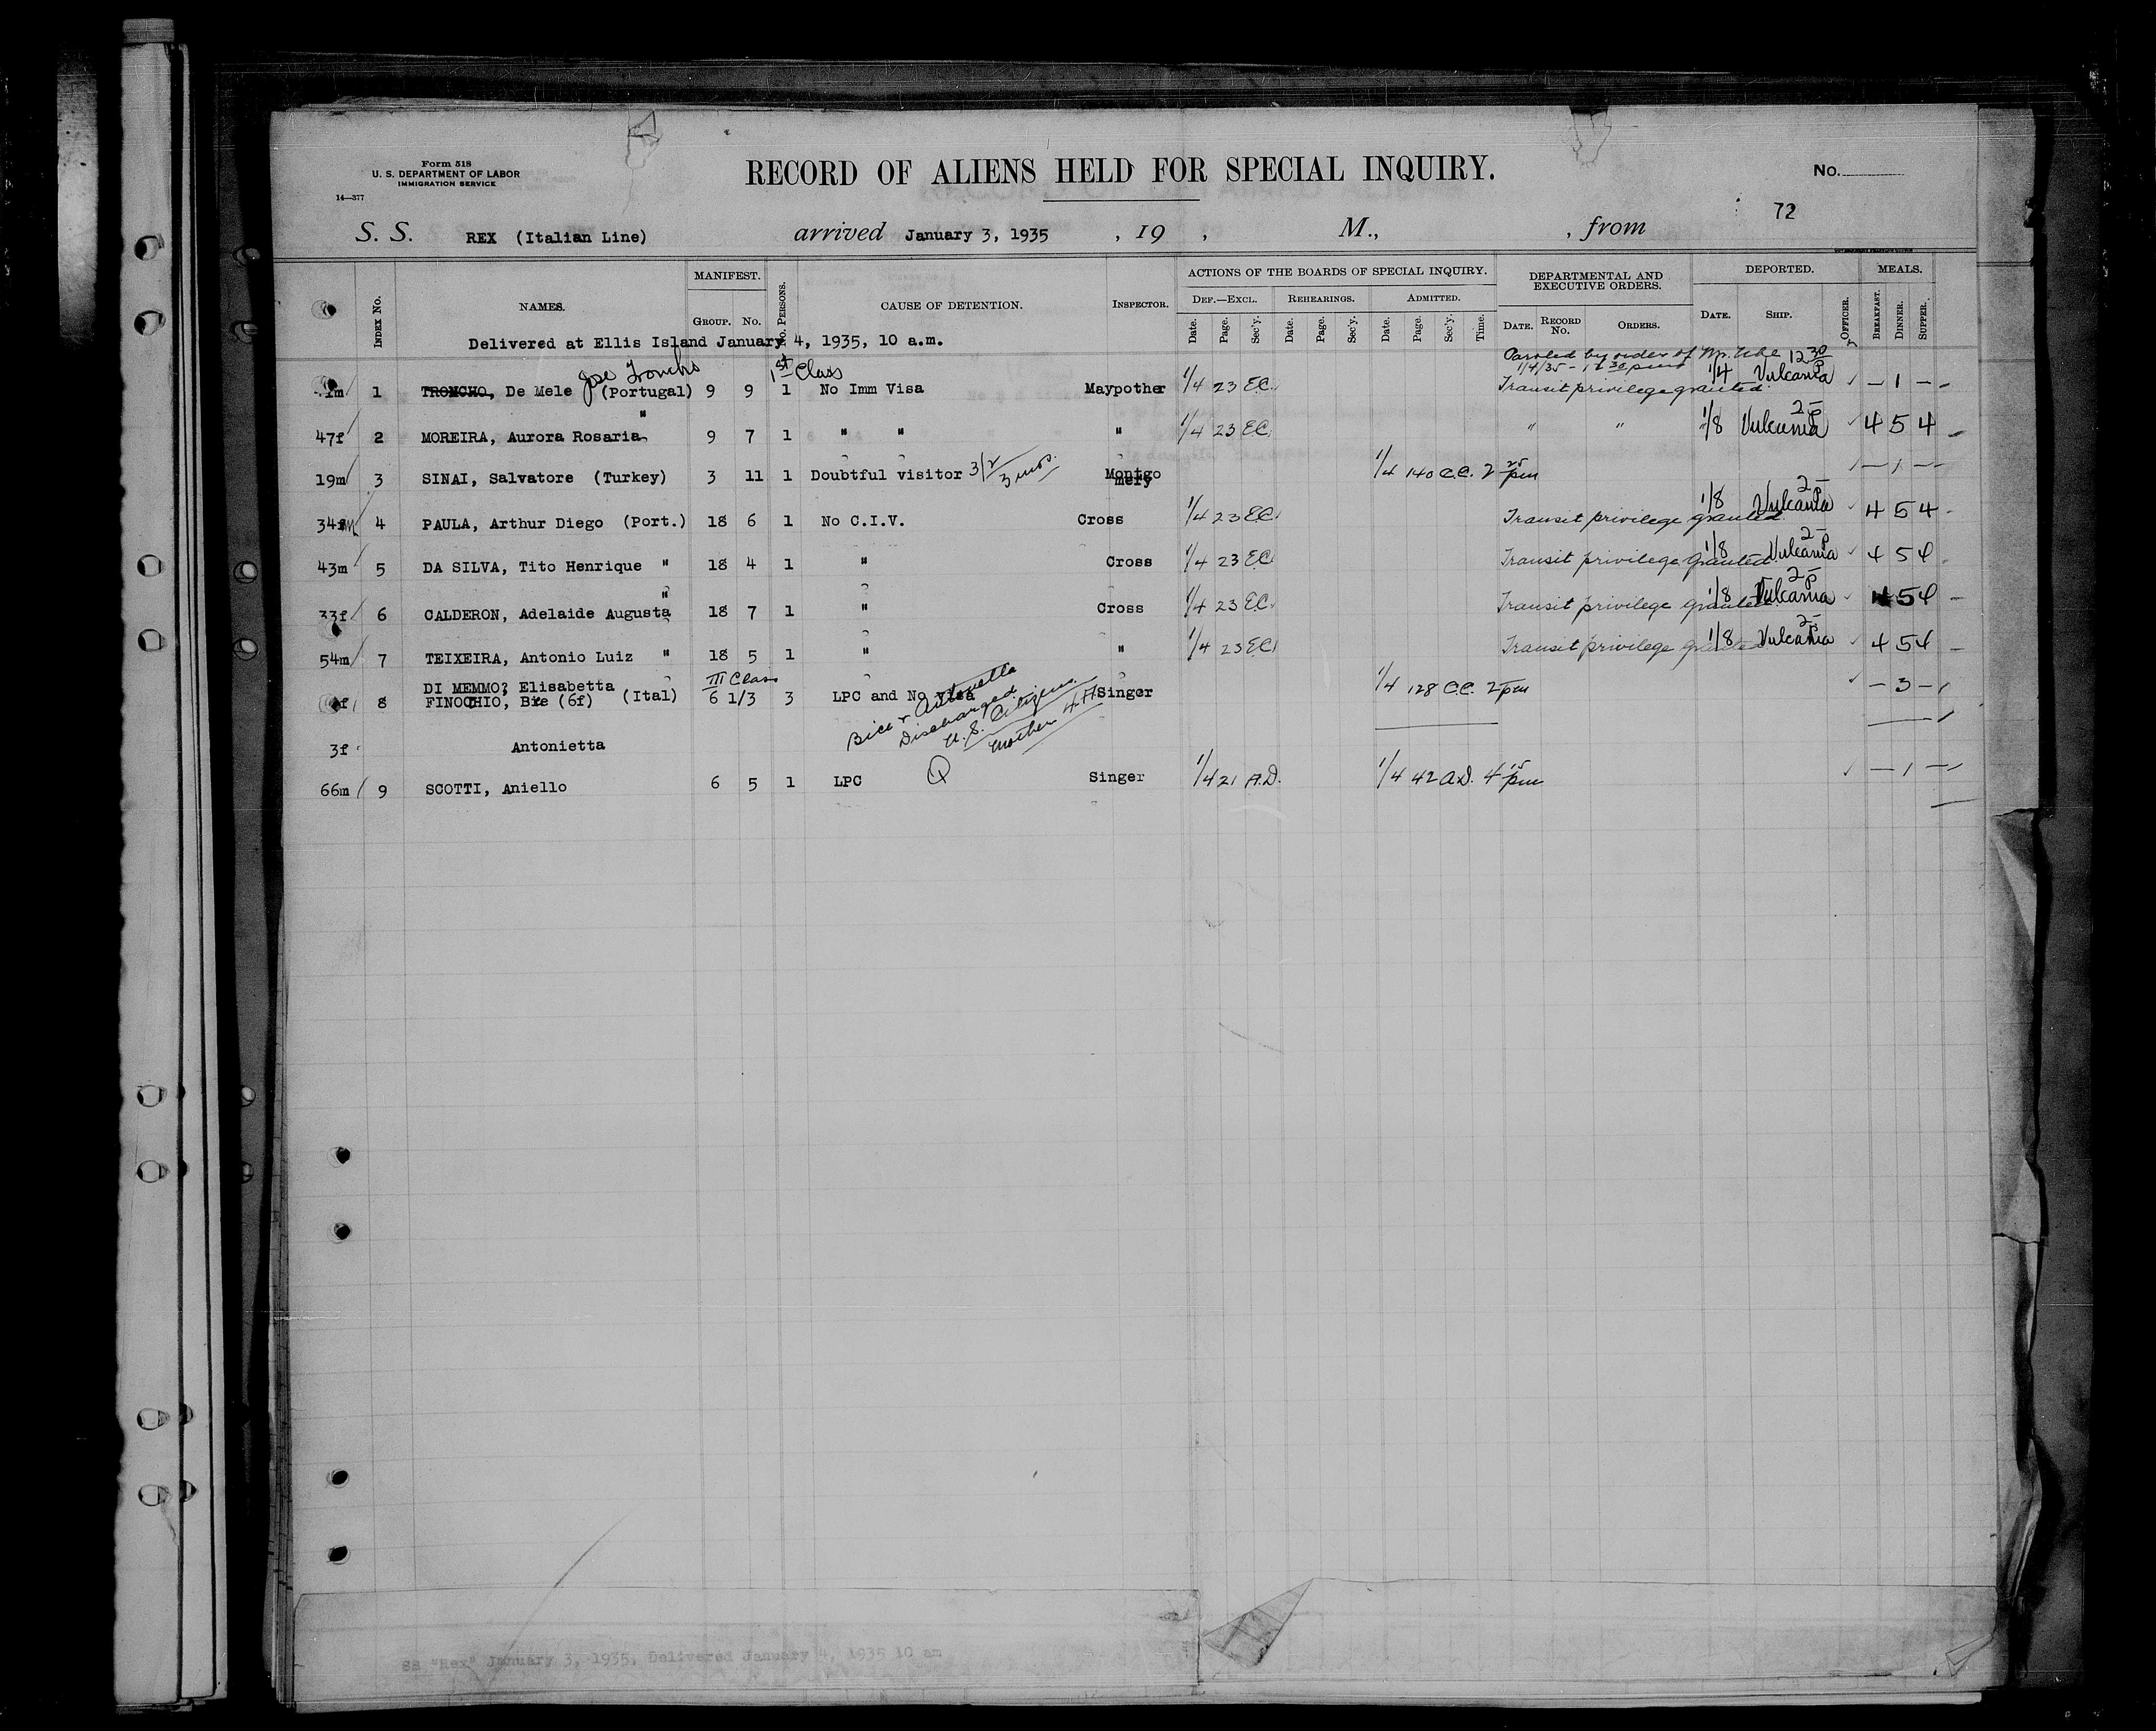 Form 518
U. S. DEPARTMENT OF LABOR
IMMIGRATION SERVICE
14—377
RECORD OF ALIENS HELD FOR SPECIAL INQUIRY.
No.
72
S. S. REX (Italian Line) arrived January 3, 1935 , 19 , M., , from
INDEX No. NAMES. MANIFEST. GROUP. No. No. PERSONS. CAUSE OF DETENTION. INSPECTOR. ACTIONS OF THE BOARDS OF SPECIAL INQUIRY. DEF.—EXCL. Date. Page. Sec'y. REHEARINGS. Date. Page. Sec'y. ADMITTED. Date. Page. Sec'y. Time. DEPARTMENTAL AND EXECUTIVE ORDERS. DATE. RECORD No. ORDERS. DEPORTED. DATE. SHIP. OFFICER. MEALS. BREAKFAST. DINNER. SUPPER.
Delivered at Ellis Island January 4, 1935, 10 a.m.
Jose Troncho 1st Class Paroled by order of Mr. Uhl 12 30
1/4/35
m 1 TRONCHO, De Mele (Portugal) 9 9 1 No Imm Visa Maypother 1/4 23 E.C. Transit privilege granted. 1/4 Vulcania — 1 —
47f 2 MOREIRA, Aurora Rosaria " 9 7 1 " " " 1/4 23 E.C. " " 1/8 Vulcania 2 P 4 5 4
19m 3 SINAI, Salvatore (Turkey) 3 11 1 Doubtful visitor 3/2 3 mos. Montgomery 1/4 140 C.C. 2 25 pm — 1 —
34m 4 PAULA, Arthur Diego (Port.) 18 6 1 No C.I.V. Cross 1/4 23 E.C. Transit privilege granted. 1/8 Vulcania 2 P 4 5 4
43m 5 DA SILVA, Tito Henrique " 18 4 1 " Cross 1/4 23 E.C. Transit privilege granted. 1/8 Vulcania 2 P 4 5 4
33f 6 CALDERON, Adelaide Augusta " 18 7 1 " Cross 1/4 23 E.C. Transit privilege granted. 1/8 Vulcania 2 P 4 5 4
54m 7 TEIXEIRA, Antonio Luiz " 18 5 1 " " 1/4 23 E.C. Transit privilege granted 1/8 Vulcania 2 P 4 5 4
III Class
DI MEMMO, Elisabetta
f 8 FINOCHIO, Bice (6f) (Ital) 6 1/3 3 LPC and No visa Singer 1/4 128 C.C. 2 pm — 3 —
Bice & Antonetta
Discharged
U.S. Citizens.
Mother
3f Antonietta
66m 9 SCOTTI, Aniello 6 5 1 LPC Q Singer 1/4 21 A.D. 1/4 42 A.D. 4 15 pm — 1 —
SS "Rex" January 3, 1935, Delivered January 4, 1935 10 am